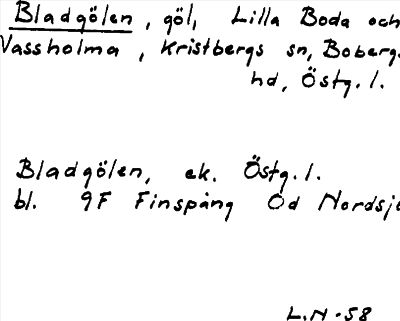 Bladgölen, göl, Lilla Boda och
Vassholma, Kristbergs sn, Boberg
hd, Östg. l.
Bladgölen, ek. Östg. l.
bl. 9F Finspång Öd Nordsj
L.N -58